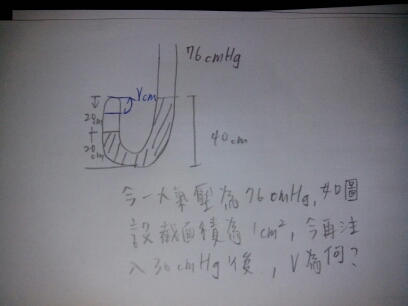 76cmHg
Vcm
20cm
20cm
40cm
今一大氣壓為76cmHg,如圖
設截面積為1cm²,今再注
入30cmHg後,V為何?